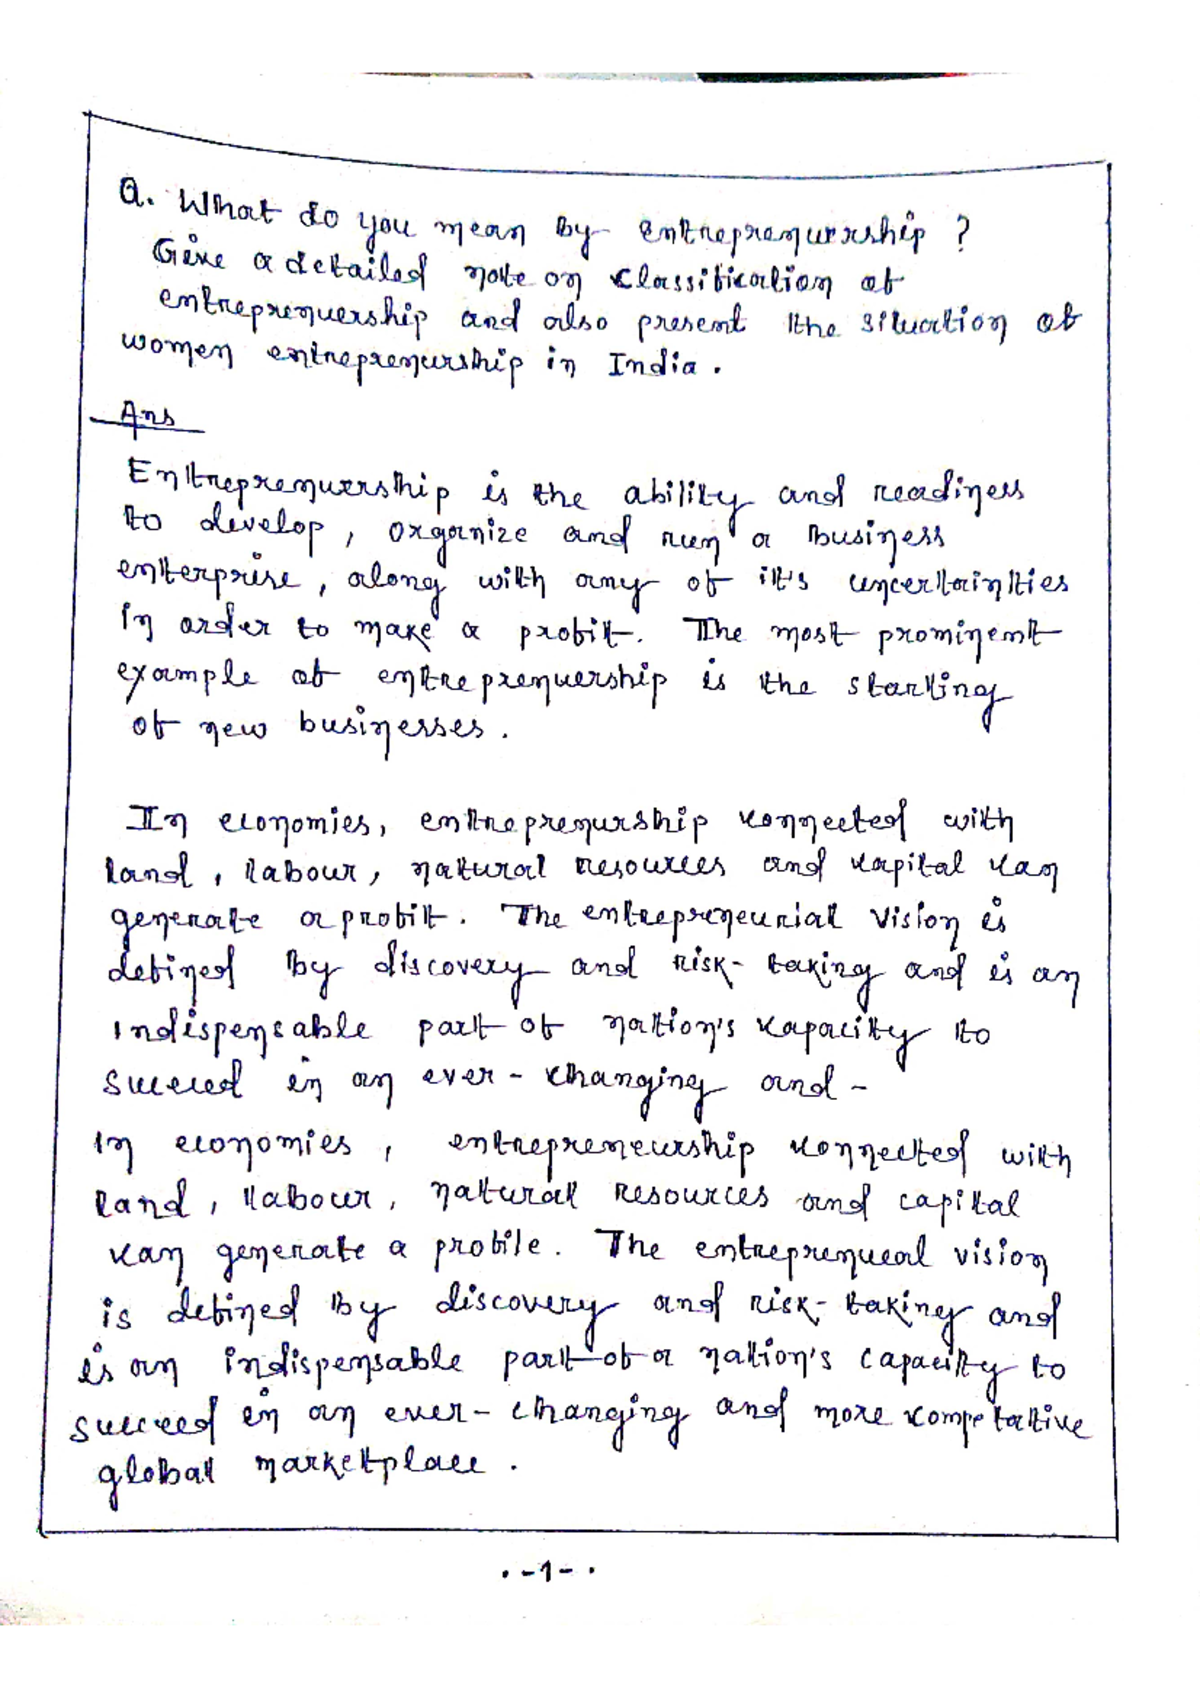 Q. What do you mean by entreprenuership ?
Give a detailed note on classification of
entreprenuership and also present the situation of
women entreprenurship in India.
Ans
Entreprenuership is the ability and readiness
to develop, organize and run a business
enterprise, along with any of it's uncertainities
in order to make a profit. The most prominent
example of entreprenuership is the starting
of new businesses.
In economies, entreprenurship connected with
land, labour, natural resources and capital can
generate a profit. The entrepreneurial vision is
defined by discovery and risk-taking and is an
indispensable part of nation's capacity to
succeed in an ever-changing and -
In economies, entrepreneurship connected with
land, labour, natural resources and capital
can generate a profile. The entreprenueal vision
is defined by discovery and risk-taking and
is an indispensable part of a nation's capacity to
succeed in an ever-changing and more competative
global marketplace.
.-1-.